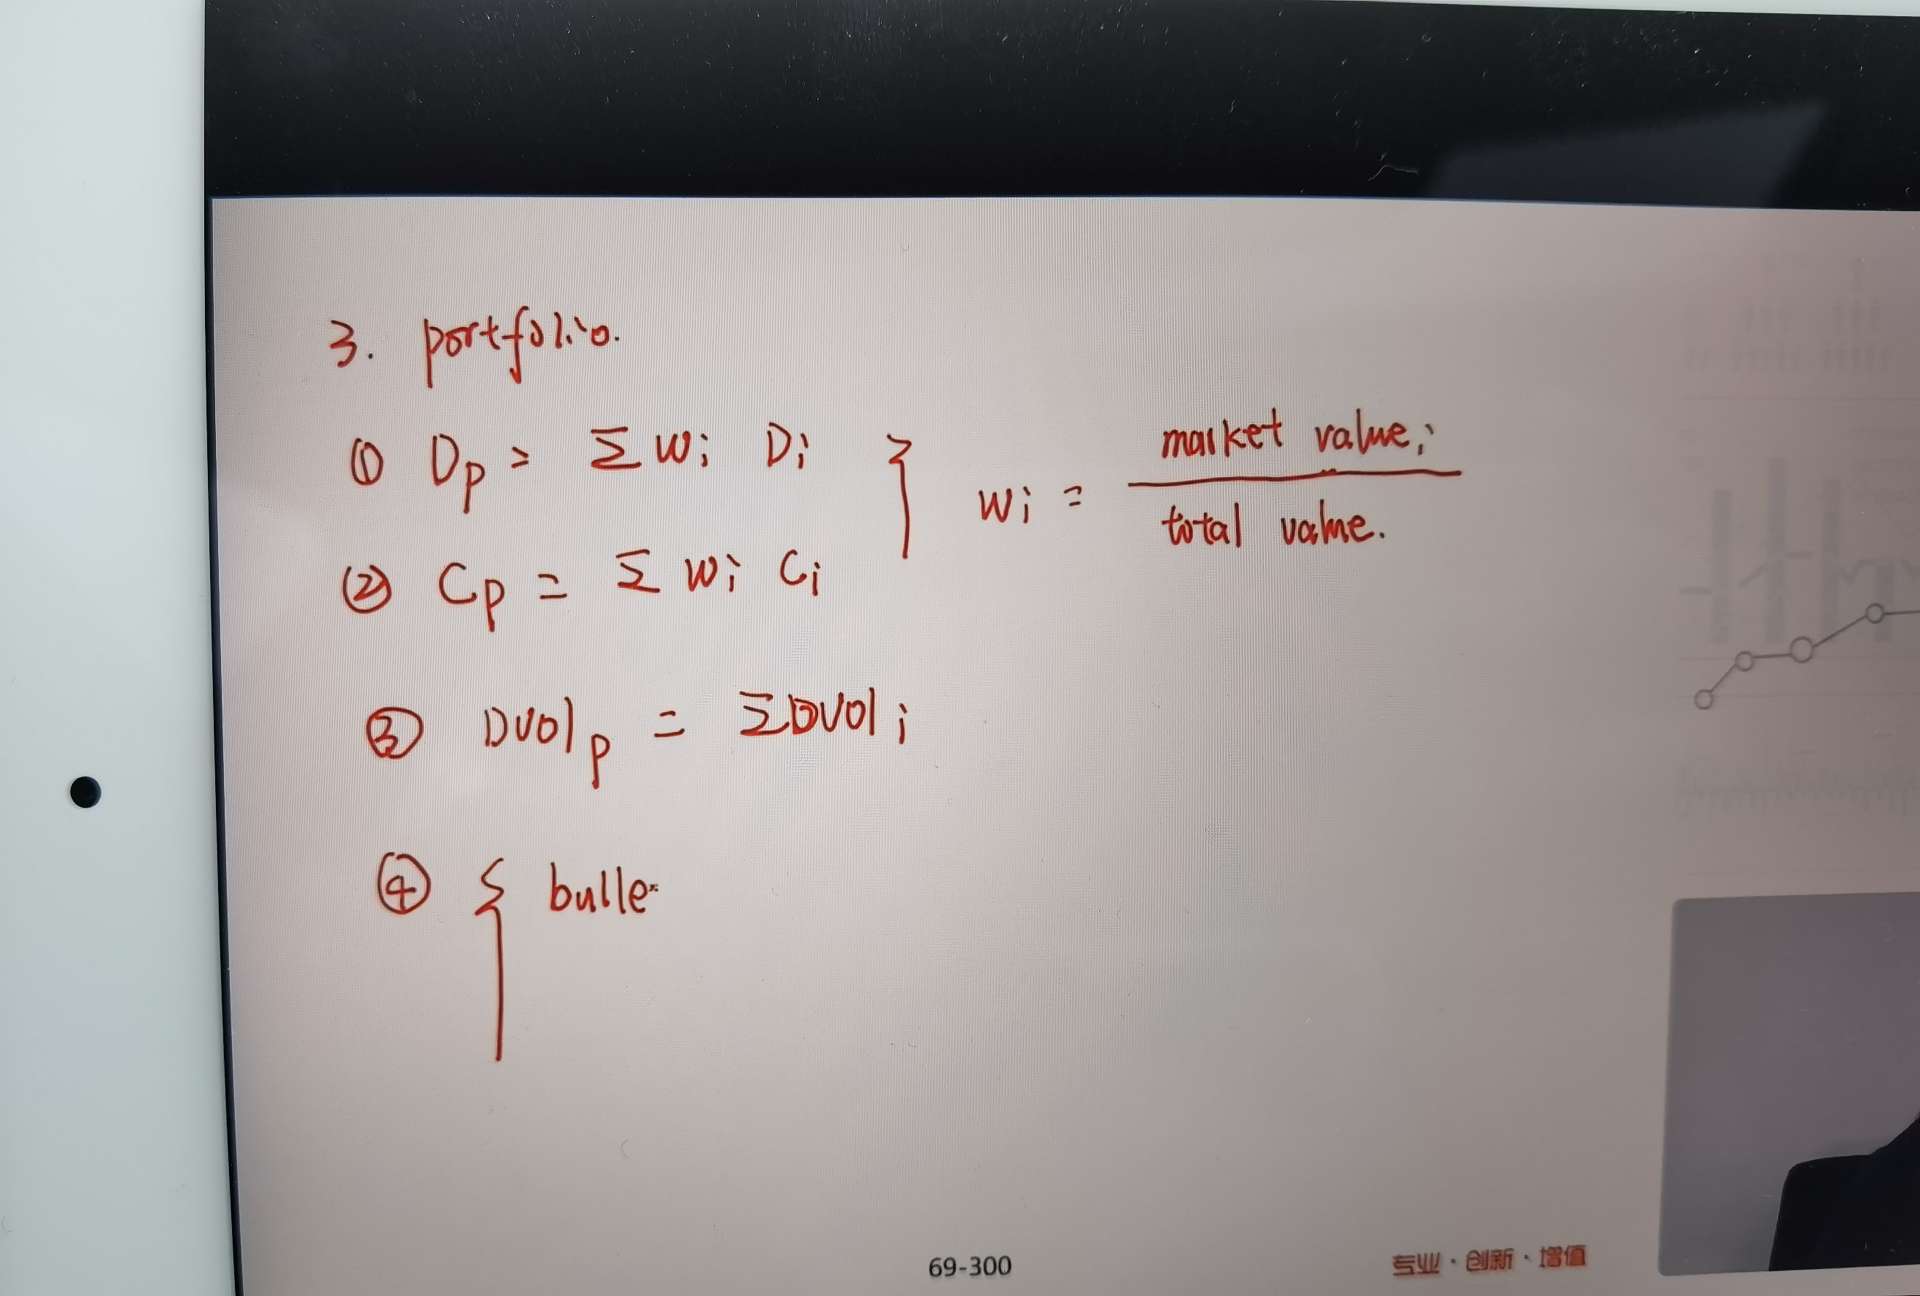 3. portfolio.
① Dp = Σ wi Di
② Cp = Σ wi Ci
wi = market value i
total value.
③ DV01p = ΣDV01i
④ { bulle
69-300
专业·创新·增值